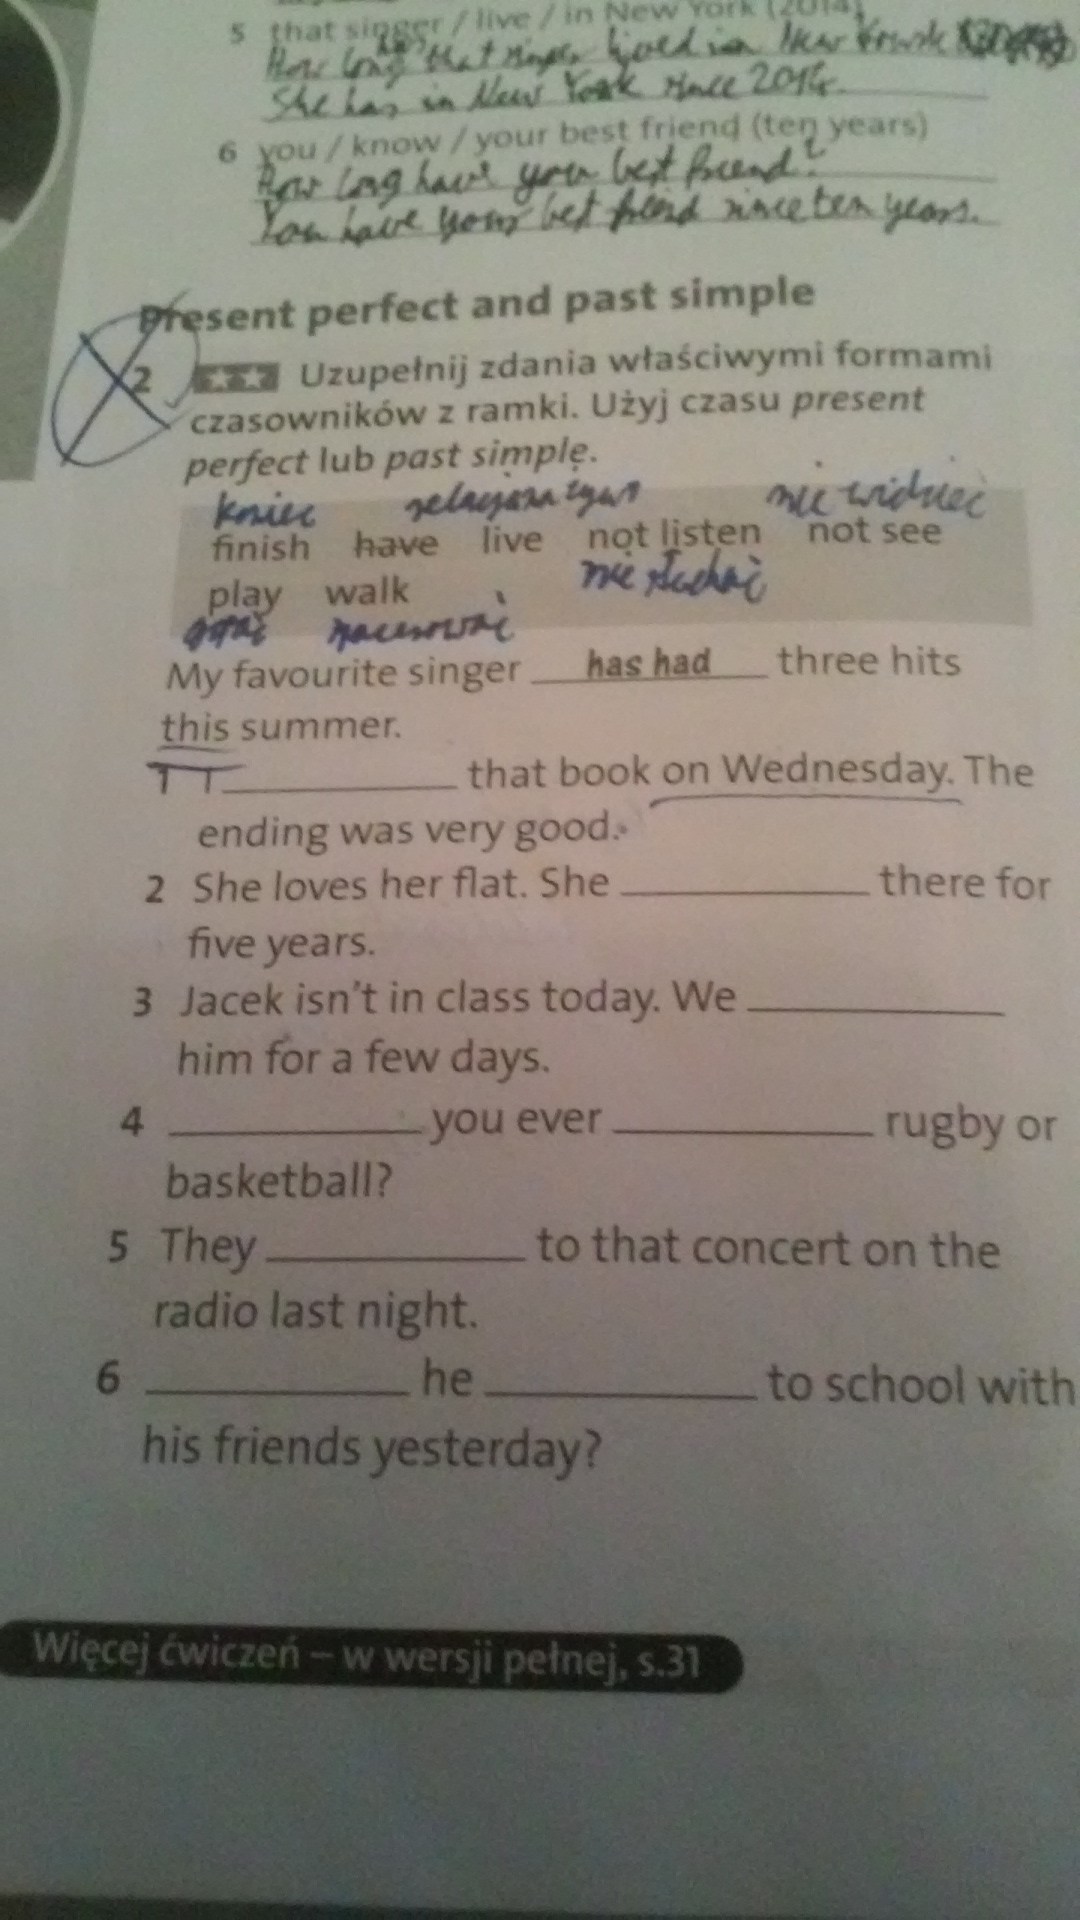 5 that singer / live / in New York (2014)
has
How long that singer lived in New
She has in New York since 2014.
6 you / know / your best friend (ten years)
How long have you best friend?
You have your best friend since ten years.
Present perfect and past simple
2 Uzupełnij zdania właściwymi formami
czasowników z ramki. Użyj czasu present
perfect lub past simple.
koniec nie widzieć
finish have live not listen not see
nie słuchać
play walk
grać
My favourite singer has had three hits
this summer.
1 I ____________ that book on Wednesday. The
ending was very good.
2 She loves her flat. She ____________ there for
five years.
3 Jacek isn't in class today. We ____________
him for a few days.
4 ____________ you ever ____________ rugby or
basketball?
5 They ____________ to that concert on the
radio last night.
6 ____________ he ____________ to school with
his friends yesterday?
Więcej ćwiczeń – w wersji pełnej, s.31